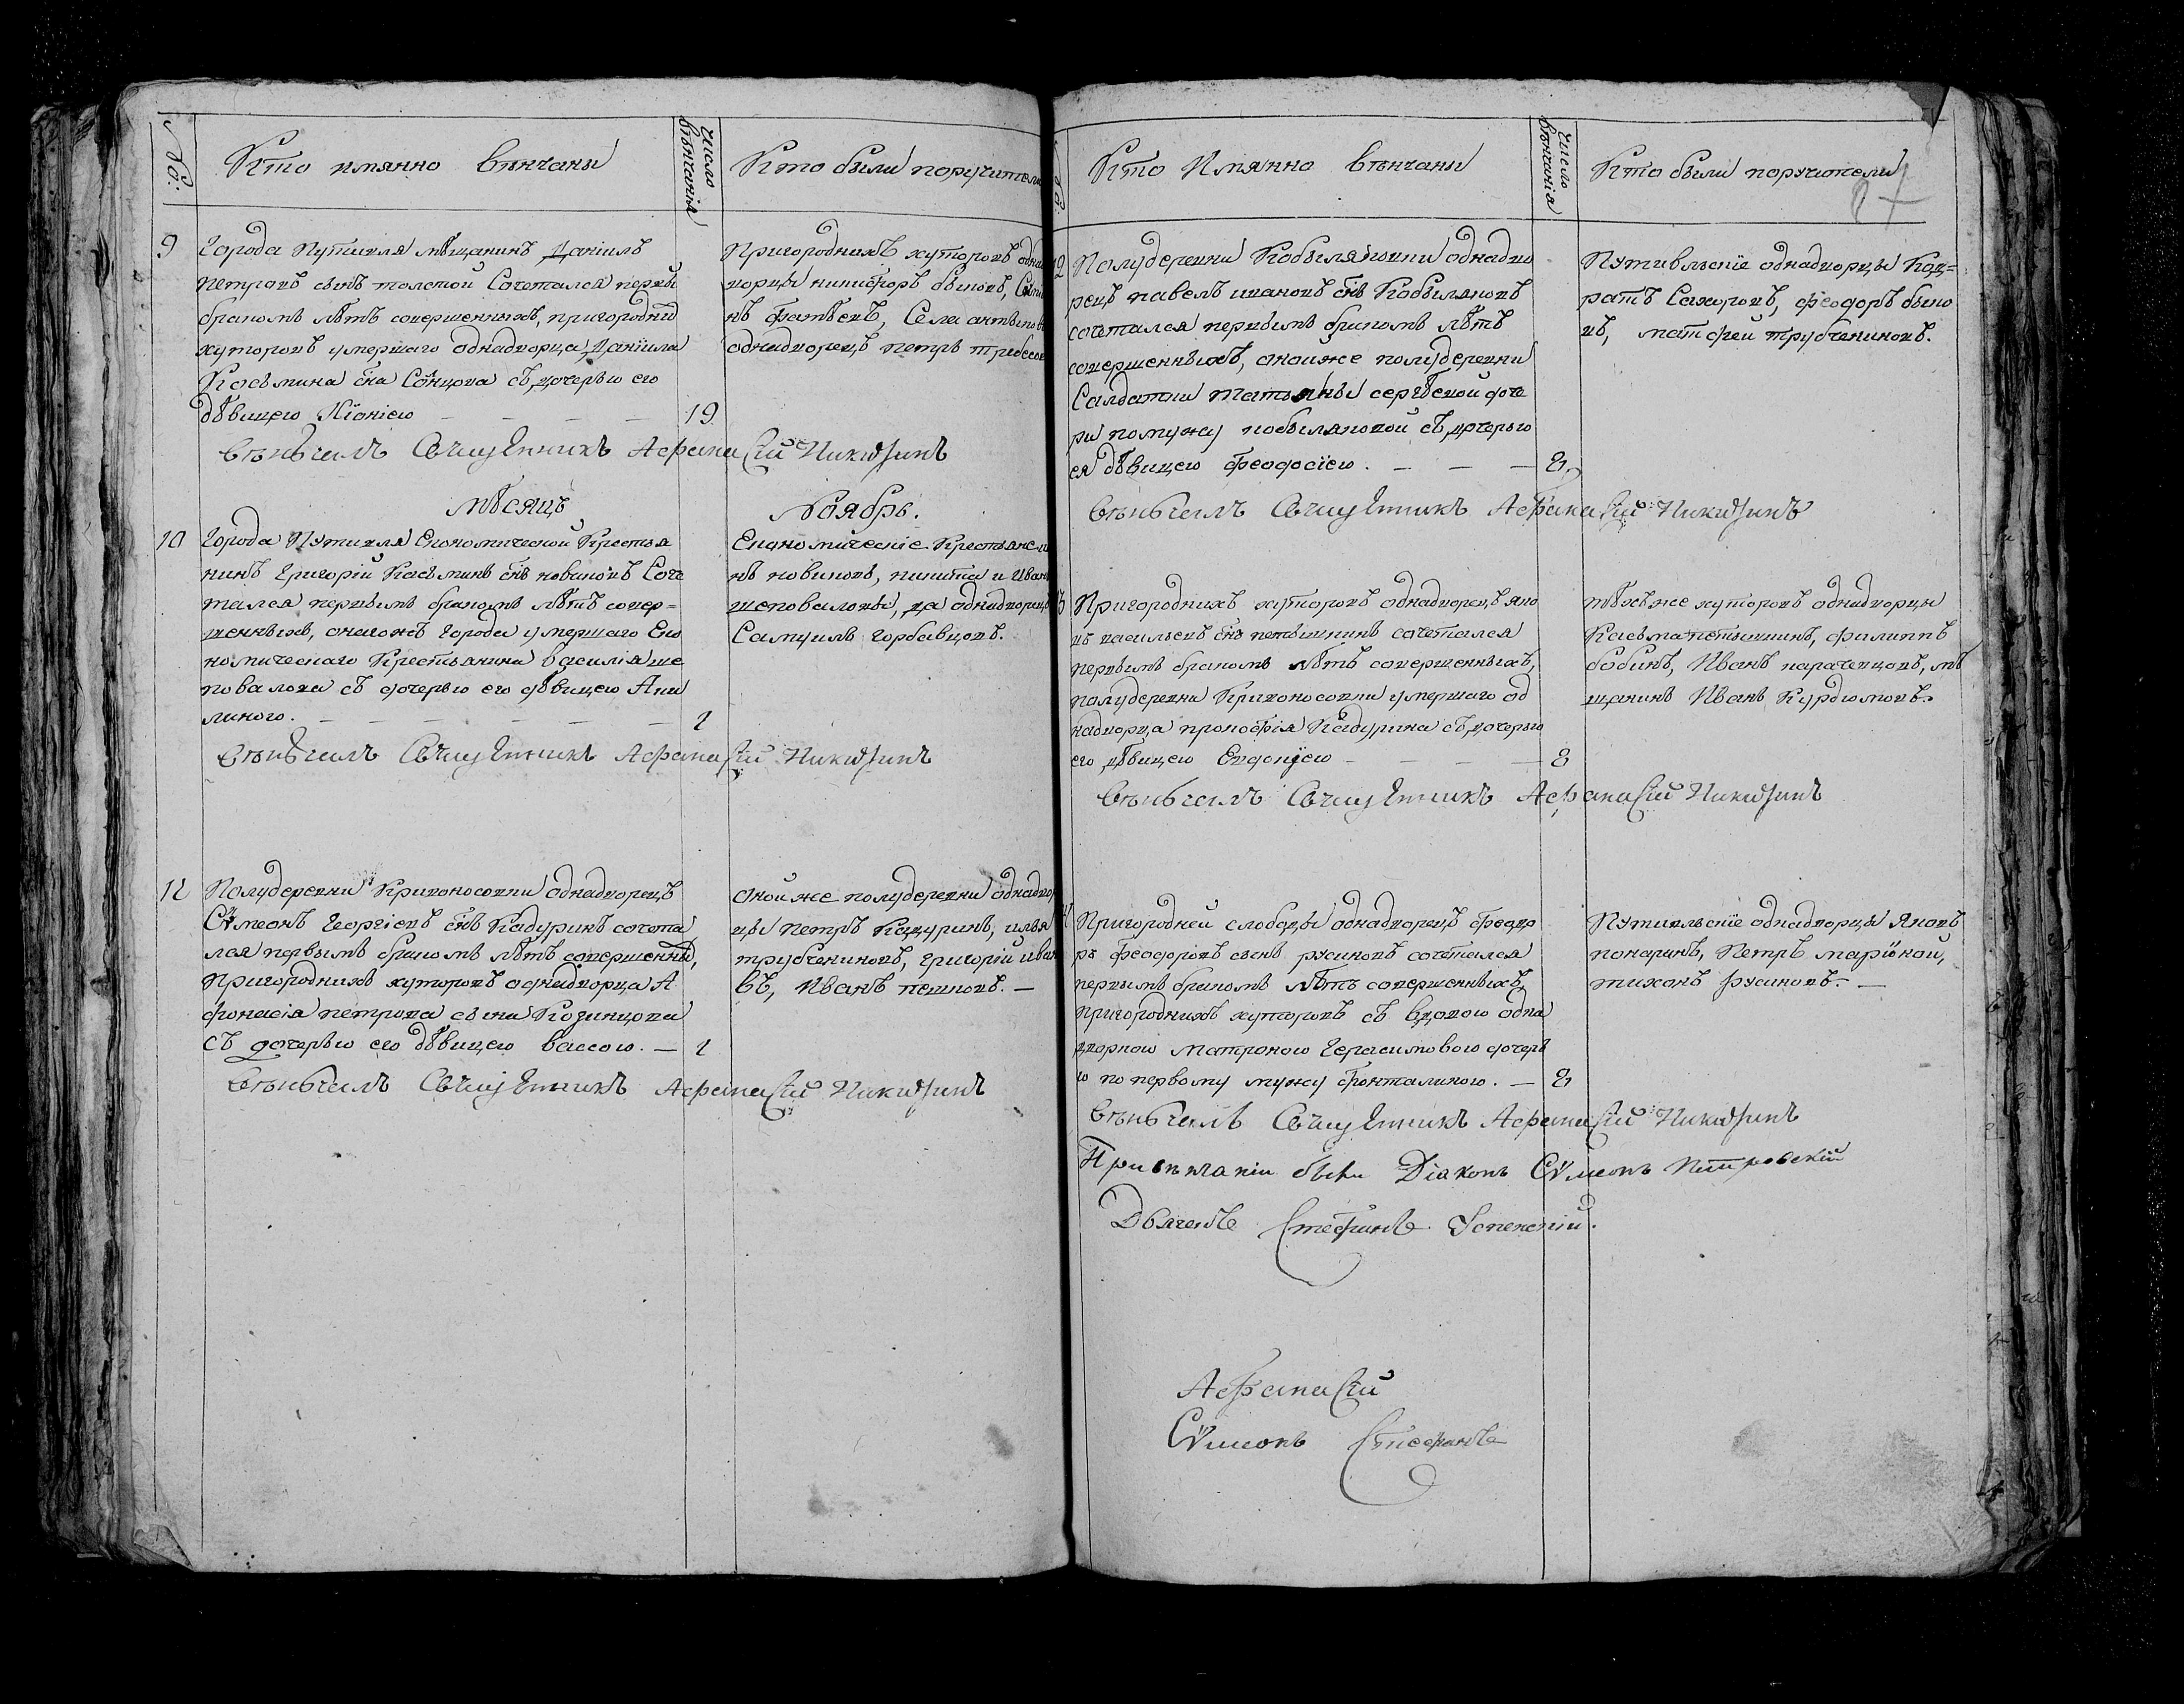 №:
Кто имянно вѣнчаны
Число вѣнчанія
Кто были поручители
9
Города Путивля мѣщанинъ Даніилъ
Петровъ сынъ толстой Сочетался первы
бракомъ лѣтъ совершенныхъ, пригородны
хуторовъ умершаго однадворца Даніила
Косьмина сна Сонцова съ дочерью его
дѣвицею Ксѣніею — — — 19
Пригороднихъ хуторовъ одна
ворцы никифоръ быковъ,
нъ фатѣевъ, Села
однадворецъ петръ
вѣнчалъ Священникъ Афанасій Никитинъ
мѣсяцъ Ноябрь.
10
Города Путивля Економической Крестья
нинъ Григорій Касьминъ снъ новиковъ Соче
тался первымъ бракомъ лѣтъ совер=
шенныхъ, онагожъ Города умершаго Еко
номическаго Крестьянина василія ше
повалова съ дочерью его дѣвицею Аки
линою. — — — 1
Економическіе Крестьяне
нъ новиковъ, никита и Иванъ
шеповаловы, да однадворецъ
Самуилъ горбавцовъ.
вѣнчалъ Священникъ Афанасій Никитинъ
11
Полудеревни Кривоносовки однадворецъ
Сѵмеонъ Георгіевъ снъ Кадуринъ сочета
лся первымъ бракомъ лѣтъ совершенны,
Пригороднихъ хуторовъ однадворца А
фонасія петрова сына Козинцова
съ дочерью его дѣвицею вассою. — 1
оной же полудеревни однадвор
цы петръ Кадуринъ, илья
трубчениновъ, григорій иван
въ, Иванъ пешковъ. —
вѣнчалъ Священникъ Афанасій Никитинъ
Кто Имянно вѣнчаны
Число вѣнчанія
Кто были поручители
87
12
Полудеревни Кобыляковки однадво
рецъ павелъ ивановъ снъ Кобыляковъ
сочетался первымъ бракомъ лѣтъ
совершенныхъ, оной же полудеревни
Салдатки татьяны сергѣевой доче
ри по мужу кобыляковой съ дочерью
ея дѣвицею феодосіею. — — — 8
Путивльскіе однадворцы Код=
ратъ Сахоровъ, феодоръ быко
въ, матфей трубчениновъ.
вѣнчалъ Священникъ Афанасій Никитинъ
13
Пригороднихъ хуторовъ однадворецъ яко
въ васильевъ снъ петышкинъ сочетался
первымъ бракомъ лѣтъ совершенныхъ,
полудеревни Кривоносовки умершаго од
надворца прокофія Кадурина съ дочерью
его дѣвицею Евдокіею — — — 8
тѣхъ же хуторовъ однадворцы
Касьма петышкинъ, филиппъ
бобинъ, Иванъ карачевцовъ, мѣ
щанинъ Иванъ Курдюмовъ.
вѣнчалъ Священникъ Афанасій Никитинъ
Пригородней слободы однадворецъ феодо
ръ феодоровъ сынъ русиновъ сочетался
первымъ бракомъ лѣтъ совершенныхъ,
пригороднихъ хуторовъ съ вдовою одна
дворкою матроною Герасимовою дочерь
ю по первому мужу фонталиною. — 8
Путивльскіе однадворцы Яковъ
понаринъ, Петръ марікой,
тихонъ русиновъ. —
вѣнчалъ Священникъ Афанасій Никитинъ
При вѣнчаніи были Діаконъ Сѵмеонъ Петровскій
Дьячекъ Стефанъ Успенскій.
Афанасій
Сѵмеонъ Стефанъ